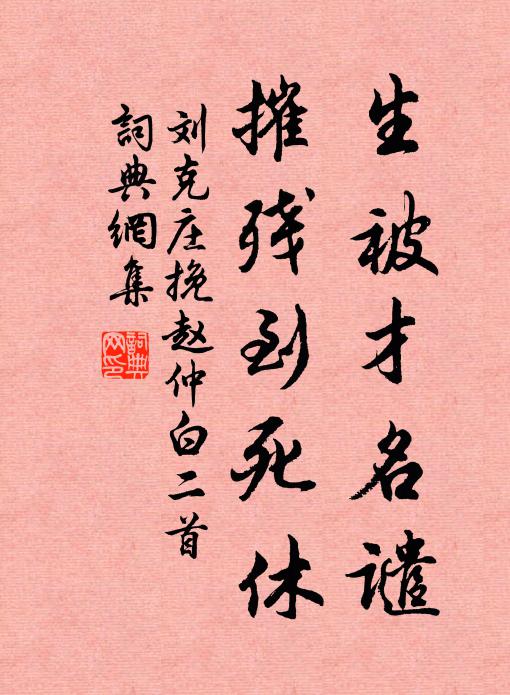 生被才名谴
摧残到死休
刘克庄挽赵仲白二首
詞典網集
詞典網印